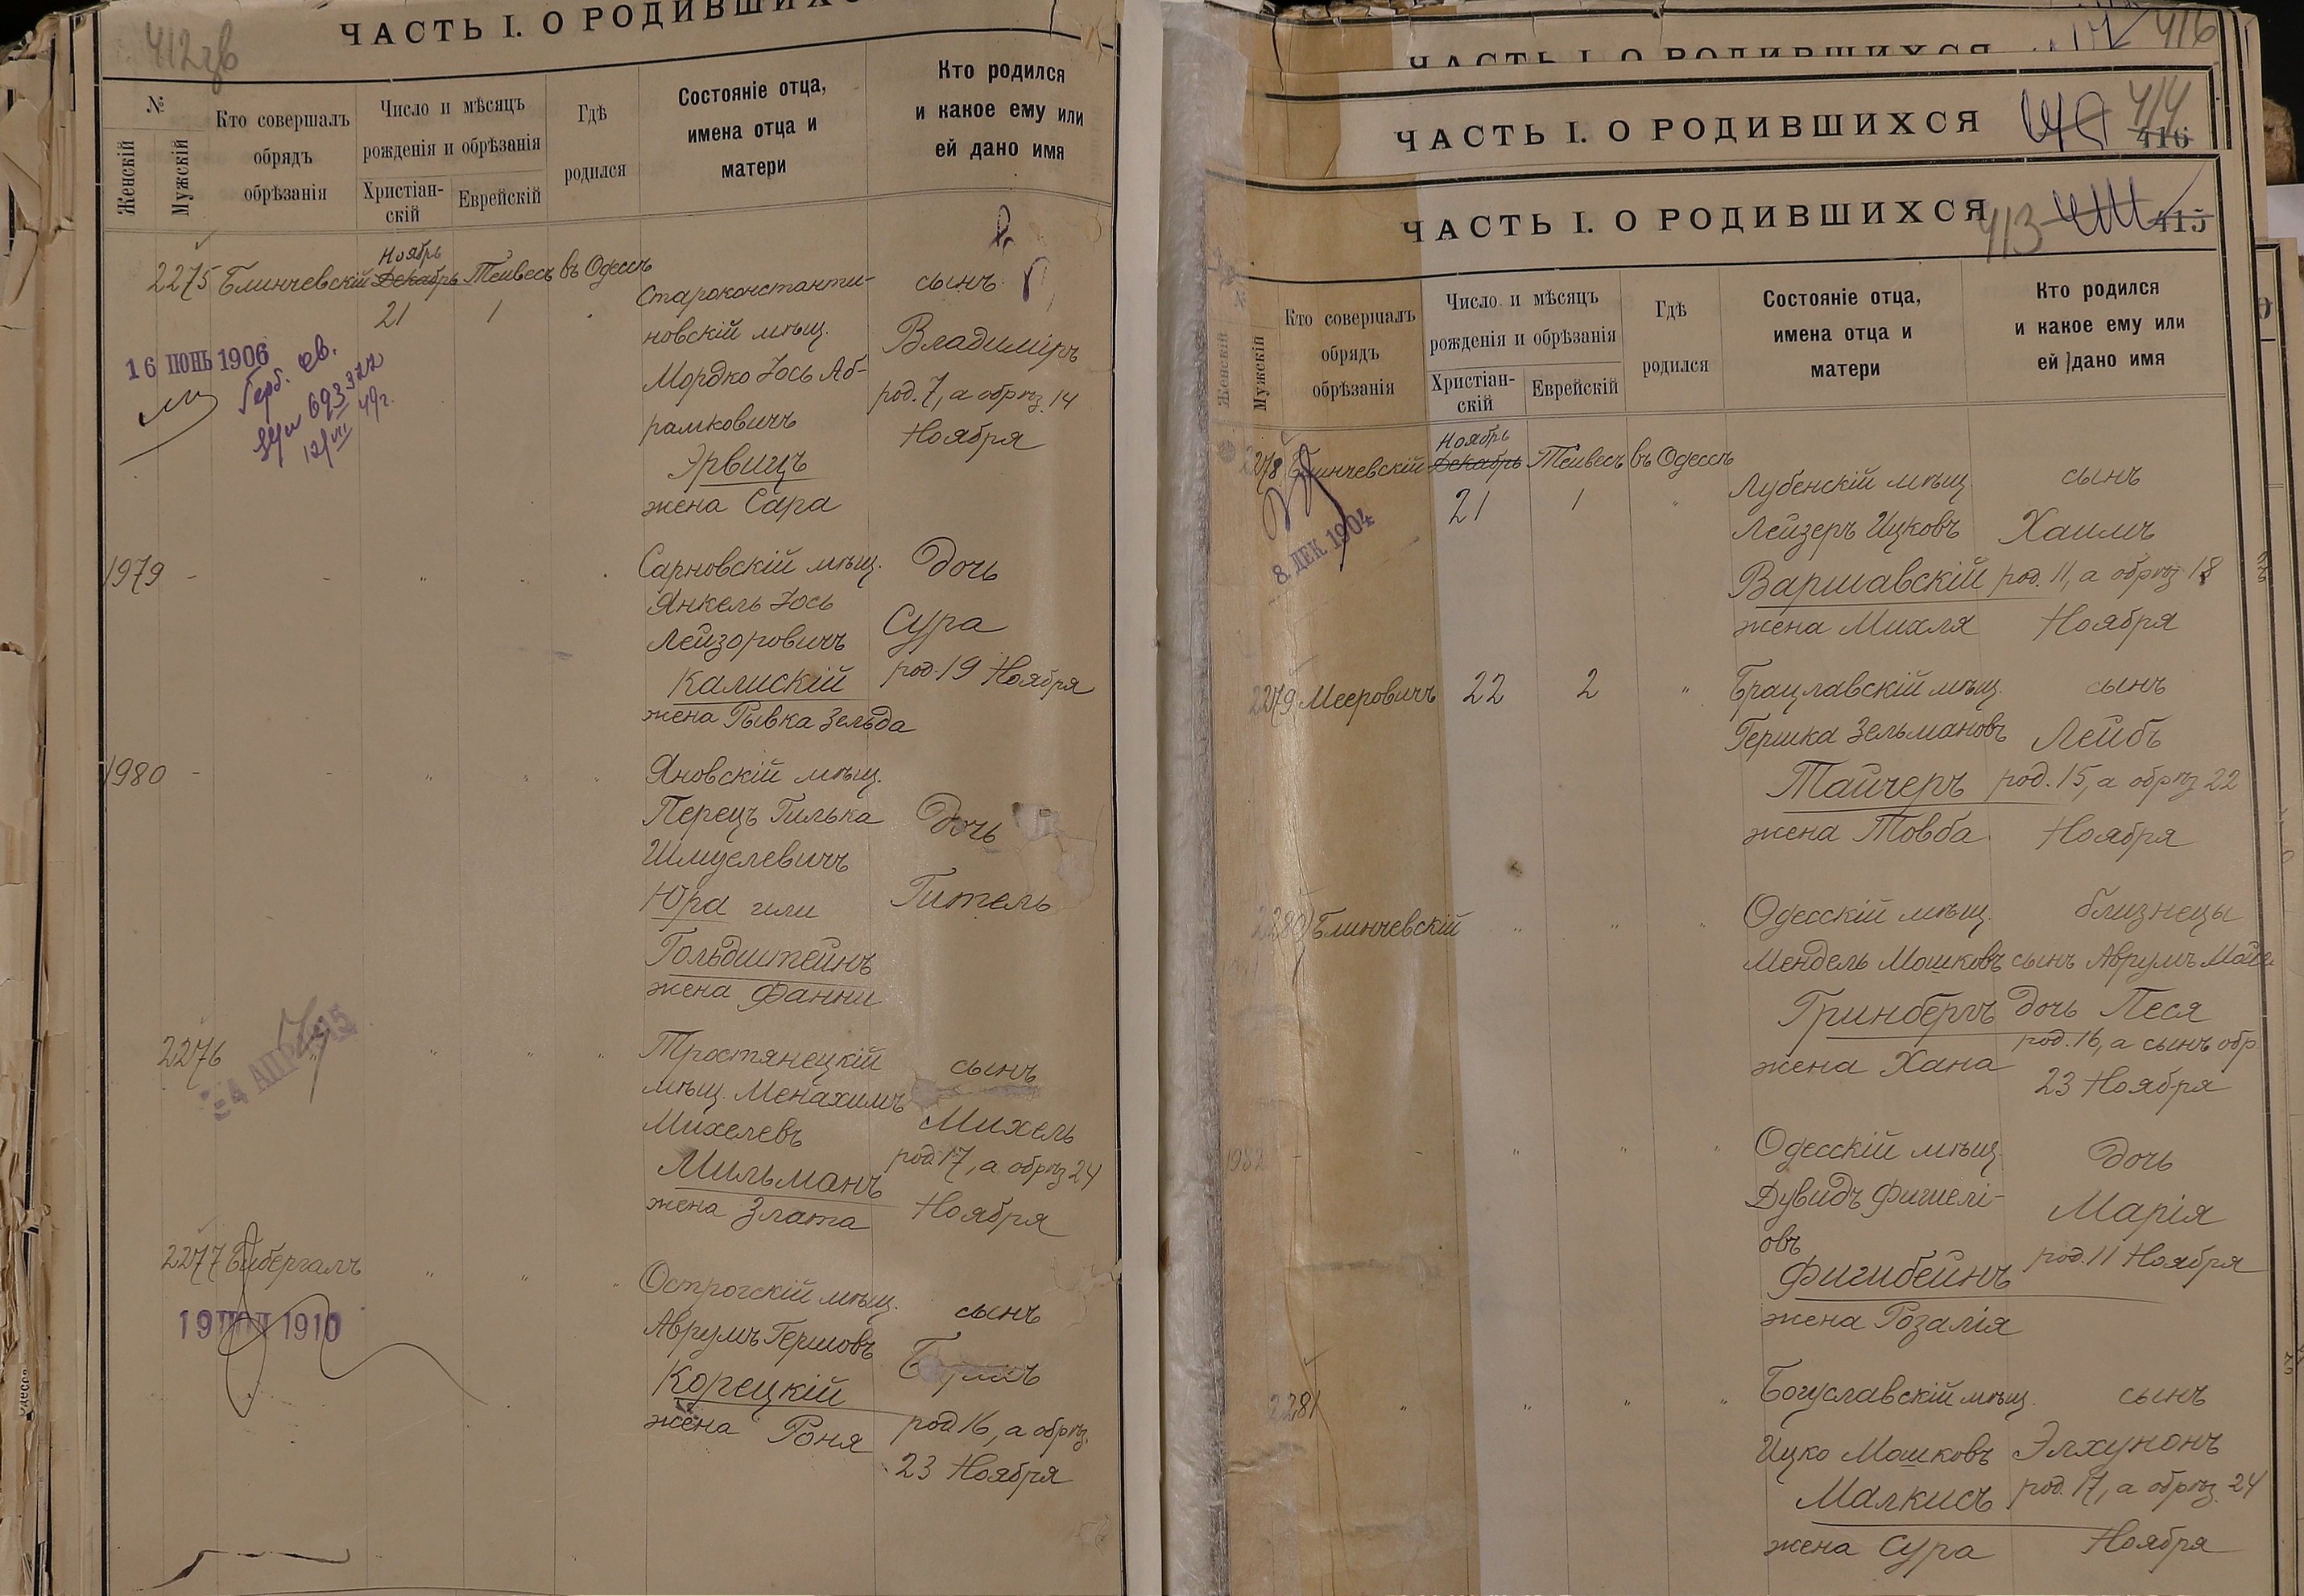 412 зв
ЧАСТЬ I. О РОДИВШИХСЯ
№
Женскій
Мужскій
Кто совершалъ
обрядъ
обрѣзанія
Число и мѣсяцъ
рожденія и обрѣзанія
Христіан-
скій
Еврейскій
Гдѣ
родился
Состояніе отца,
имена отца и
матери
Кто родился
и какое ему или
ей дано имя
Ноябрь
2275 Блинчевскій Декабрь Тейвесъ въ Одессѣ
21 1
Староконстанти-
новскій мѣщ.
Мордко Іось Аб-
рамковичъ
Эрвицъ
жена Сара
сынъ
Владиміръ
род. 7, а обрѣз. 14
Ноября
16 ІЮНЬ 1906
1979 - -
Сарновскій мѣщ.
Янкель Іось
Лейзоровичъ
Калискій
жена Рывка Зельда
Дочь
Сура
род. 19 Ноября
1980 - -
Яновскій мѣщ.
Перецъ Гилька
Шмуелевичъ
Юра или
Гольдштейнъ
жена Фанни
Дочь
Гитель
2276
Тростянецкій
мѣщ. Менахимъ
Михелевъ
Мильманъ
жена Злата
сынъ
Михель
род. 17, а обрѣз. 24
Ноября
2277 Бибергалъ
19 1910
Острогскій мѣщ.
Аврумъ Гершовъ
Корецкій
жена Роня
сынъ
род. 16, а обрѣз.
23 Ноября
ЧАСТЬ I. О РОДИВШИХСЯ 416
ЧАСТЬ I. О РОДИВШИХСЯ 414
416
ЧАСТЬ I. О РОДИВШИХСЯ 413 415
№
Женскій
Мужскій
Кто совершалъ
обрядъ
обрѣзанія
Число и мѣсяцъ
рожденія и обрѣзанія
Христіан-
скій
Еврейскій
Гдѣ
родился
Состояніе отца,
имена отца и
матери
Кто родился
и какое ему или
ей дано имя
Ноябрь
2278 Блинчевскій Декабрь Тейвесъ въ Одессѣ
21 1
8. ДЕК 1904
Лубенскій мѣщ.
Лейзеръ Ицковъ
Варшавскій
жена Михля
сынъ
Хаимъ
род. 11, а обрѣз. 18
Ноября
2279 Мееровичъ 22 2
Брацлавскій мѣщ.
Гершка Зельмановъ
Тайчеръ
жена Товба
сынъ
Лейбъ
род. 15, а обрѣз. 22
Ноября
2280 Блинчевскій
Одесскій мѣщ.
Мендель Мошковъ
Гринбергъ
жена Хана
близнецы
сынъ Аврумъ
дочь Песя
род. 16, а сынъ обр
23 Ноября
1982 - -
Одесскій мѣщ.
Дувидъ Фишелі-
овъ
Фигибейнъ
жена Розалія
Дочь
Марія
род. 11 Ноября
2281
Богуславскій мѣщ.
Ицко Мошковъ
Малкисъ
жена Сура
сынъ
Элхунонъ
род. 17, а обрѣз. 24
Ноября